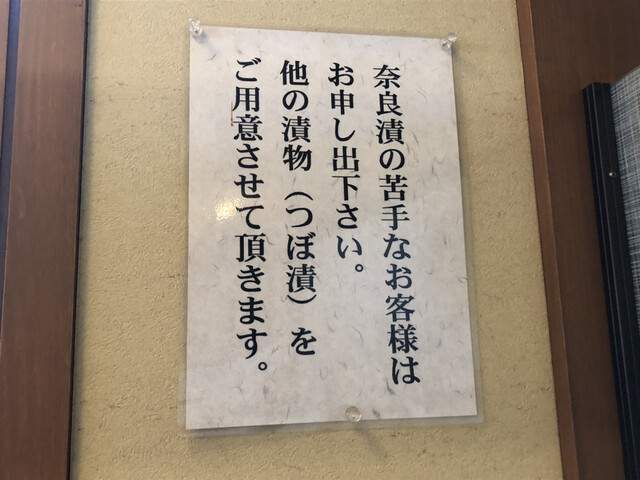 奈良漬の苦手なお客様は
お申し出下さい。
他の漬物（つぼ漬）を
ご用意させて頂きます。